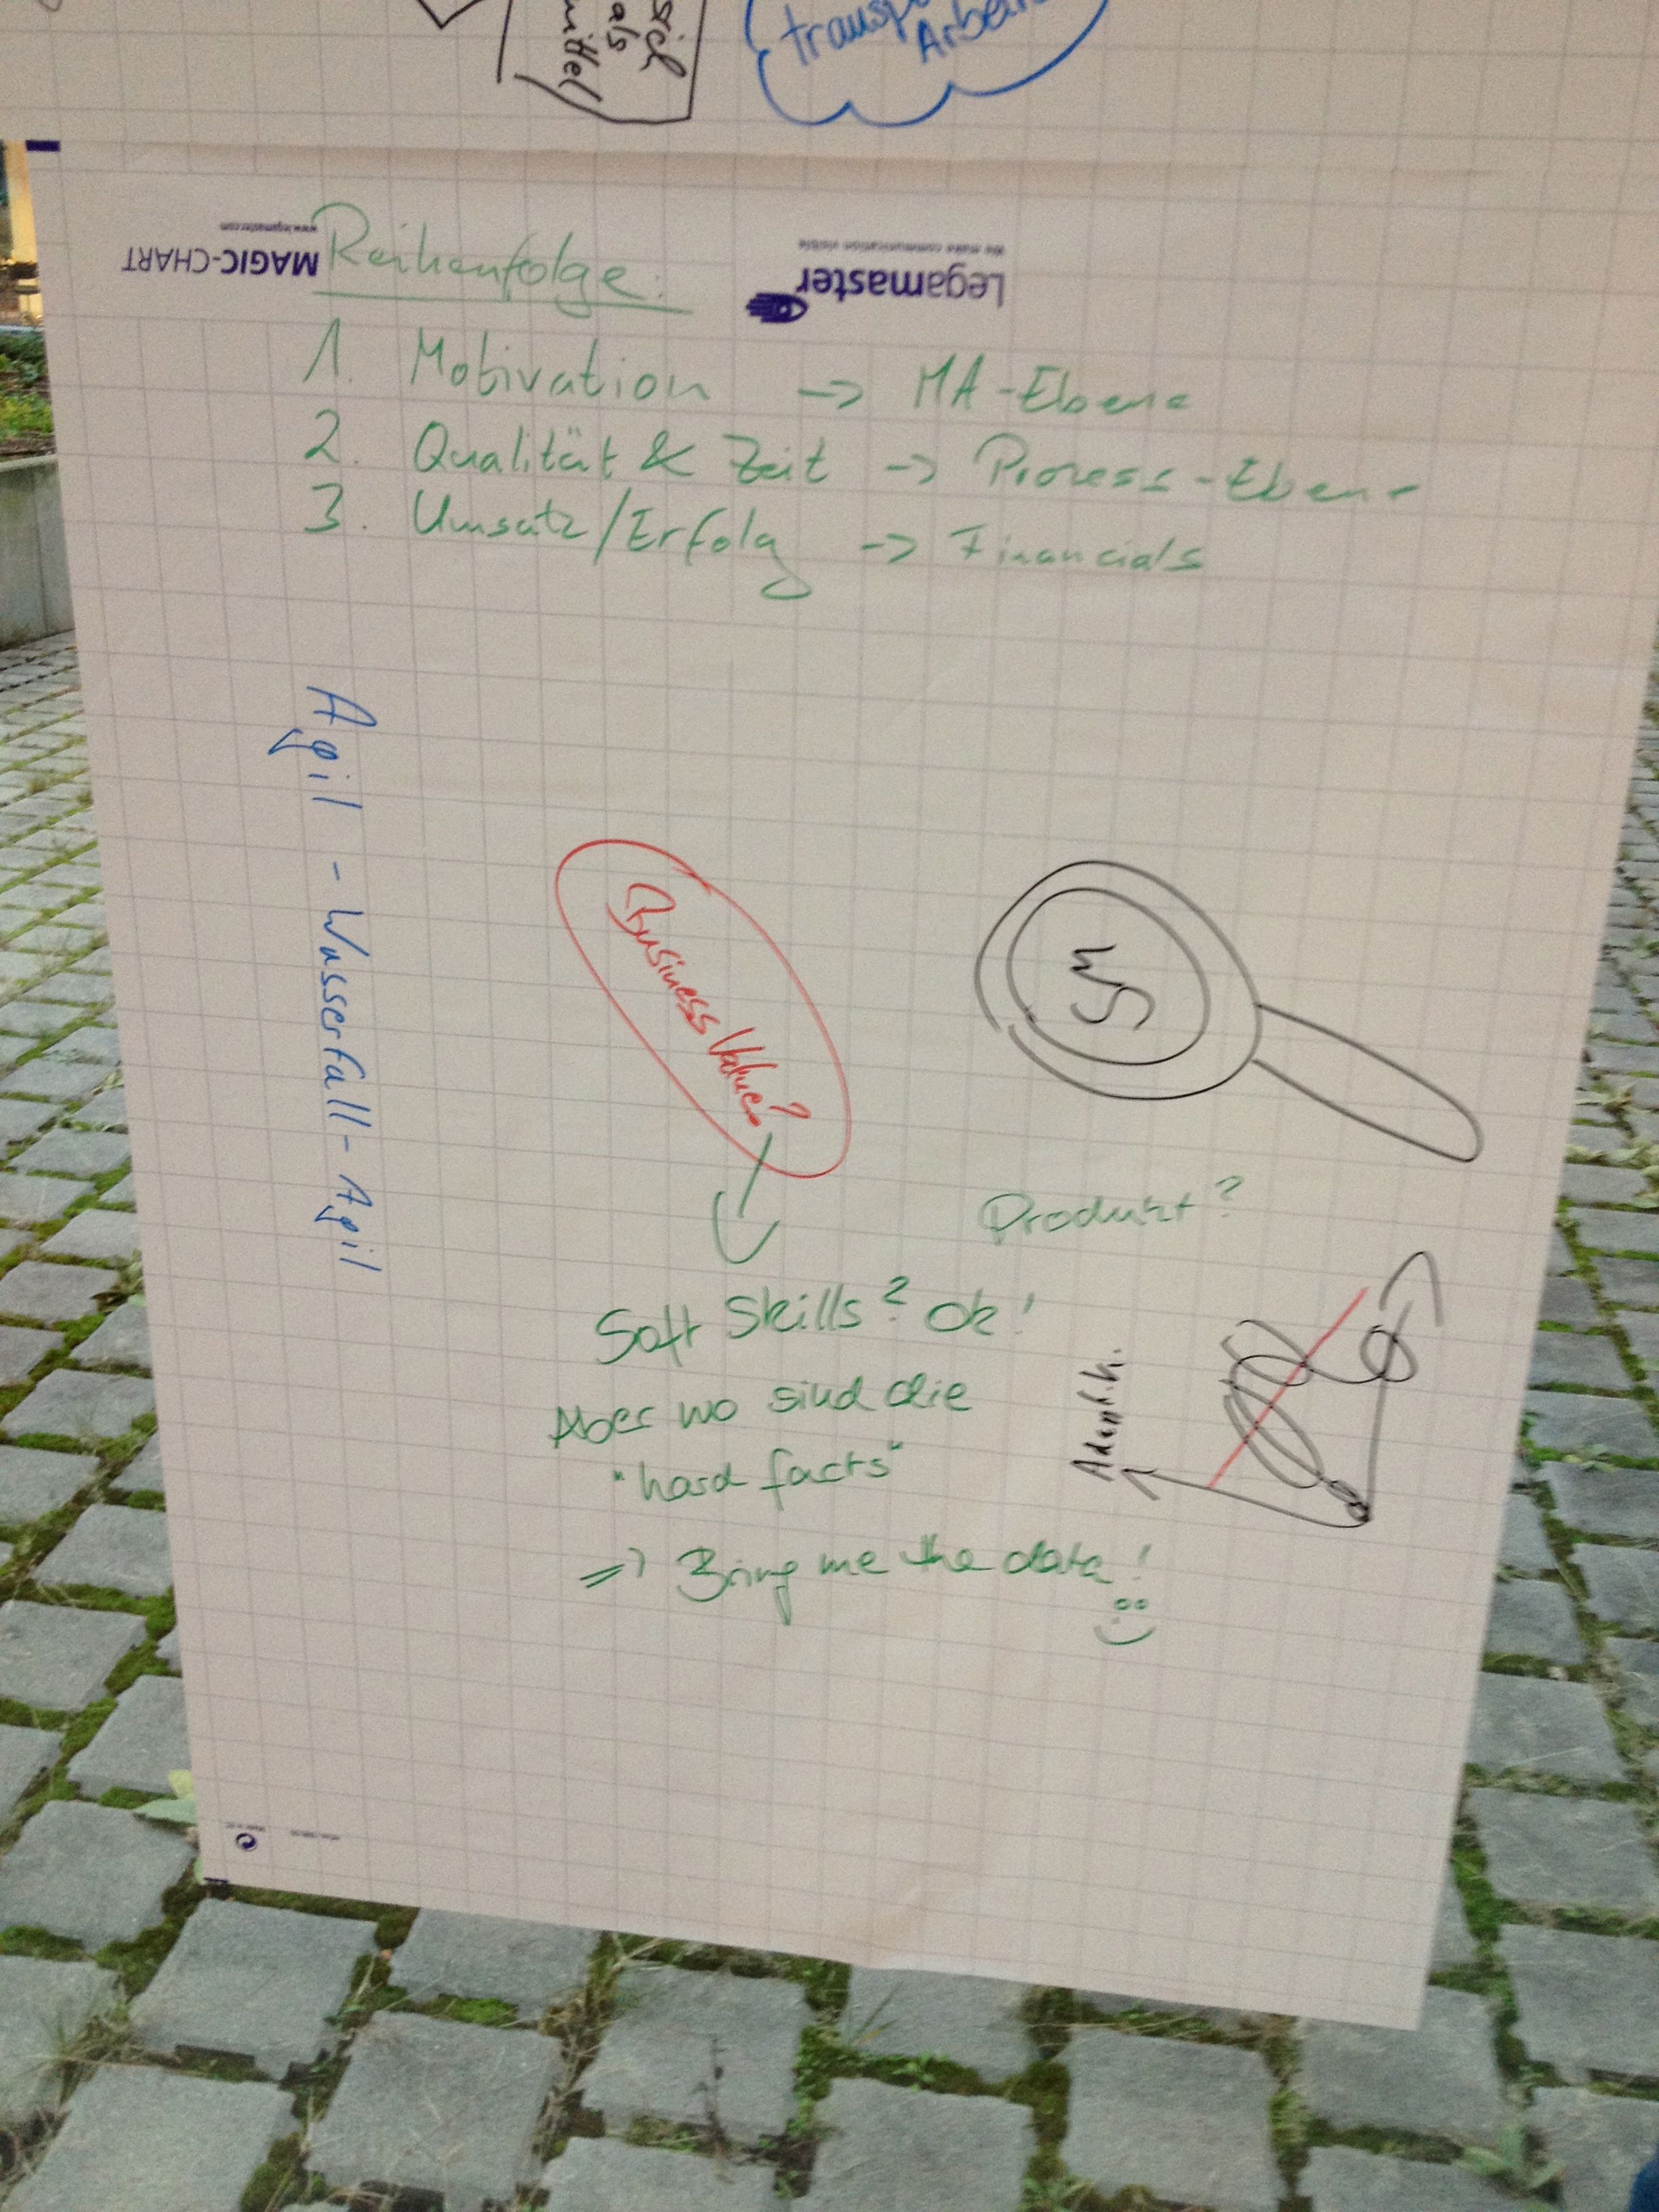 sich
als
mittel
Arbeit
www.legamaster.com
MAGIC-CHART
we make communication visible
Legamaster
Reihenfolge:
1. Motivation -> MA-Ebene
2. Qualität & Zeit -> Prozess-Ebene
3. Umsatz/Erfolg -> Financials
Agil - Wasserfall - Agil
Business Value?
Produkt?
Soft Skills? Ok!
Aber wo sind die
"hard facts"
=> Bring me the data!